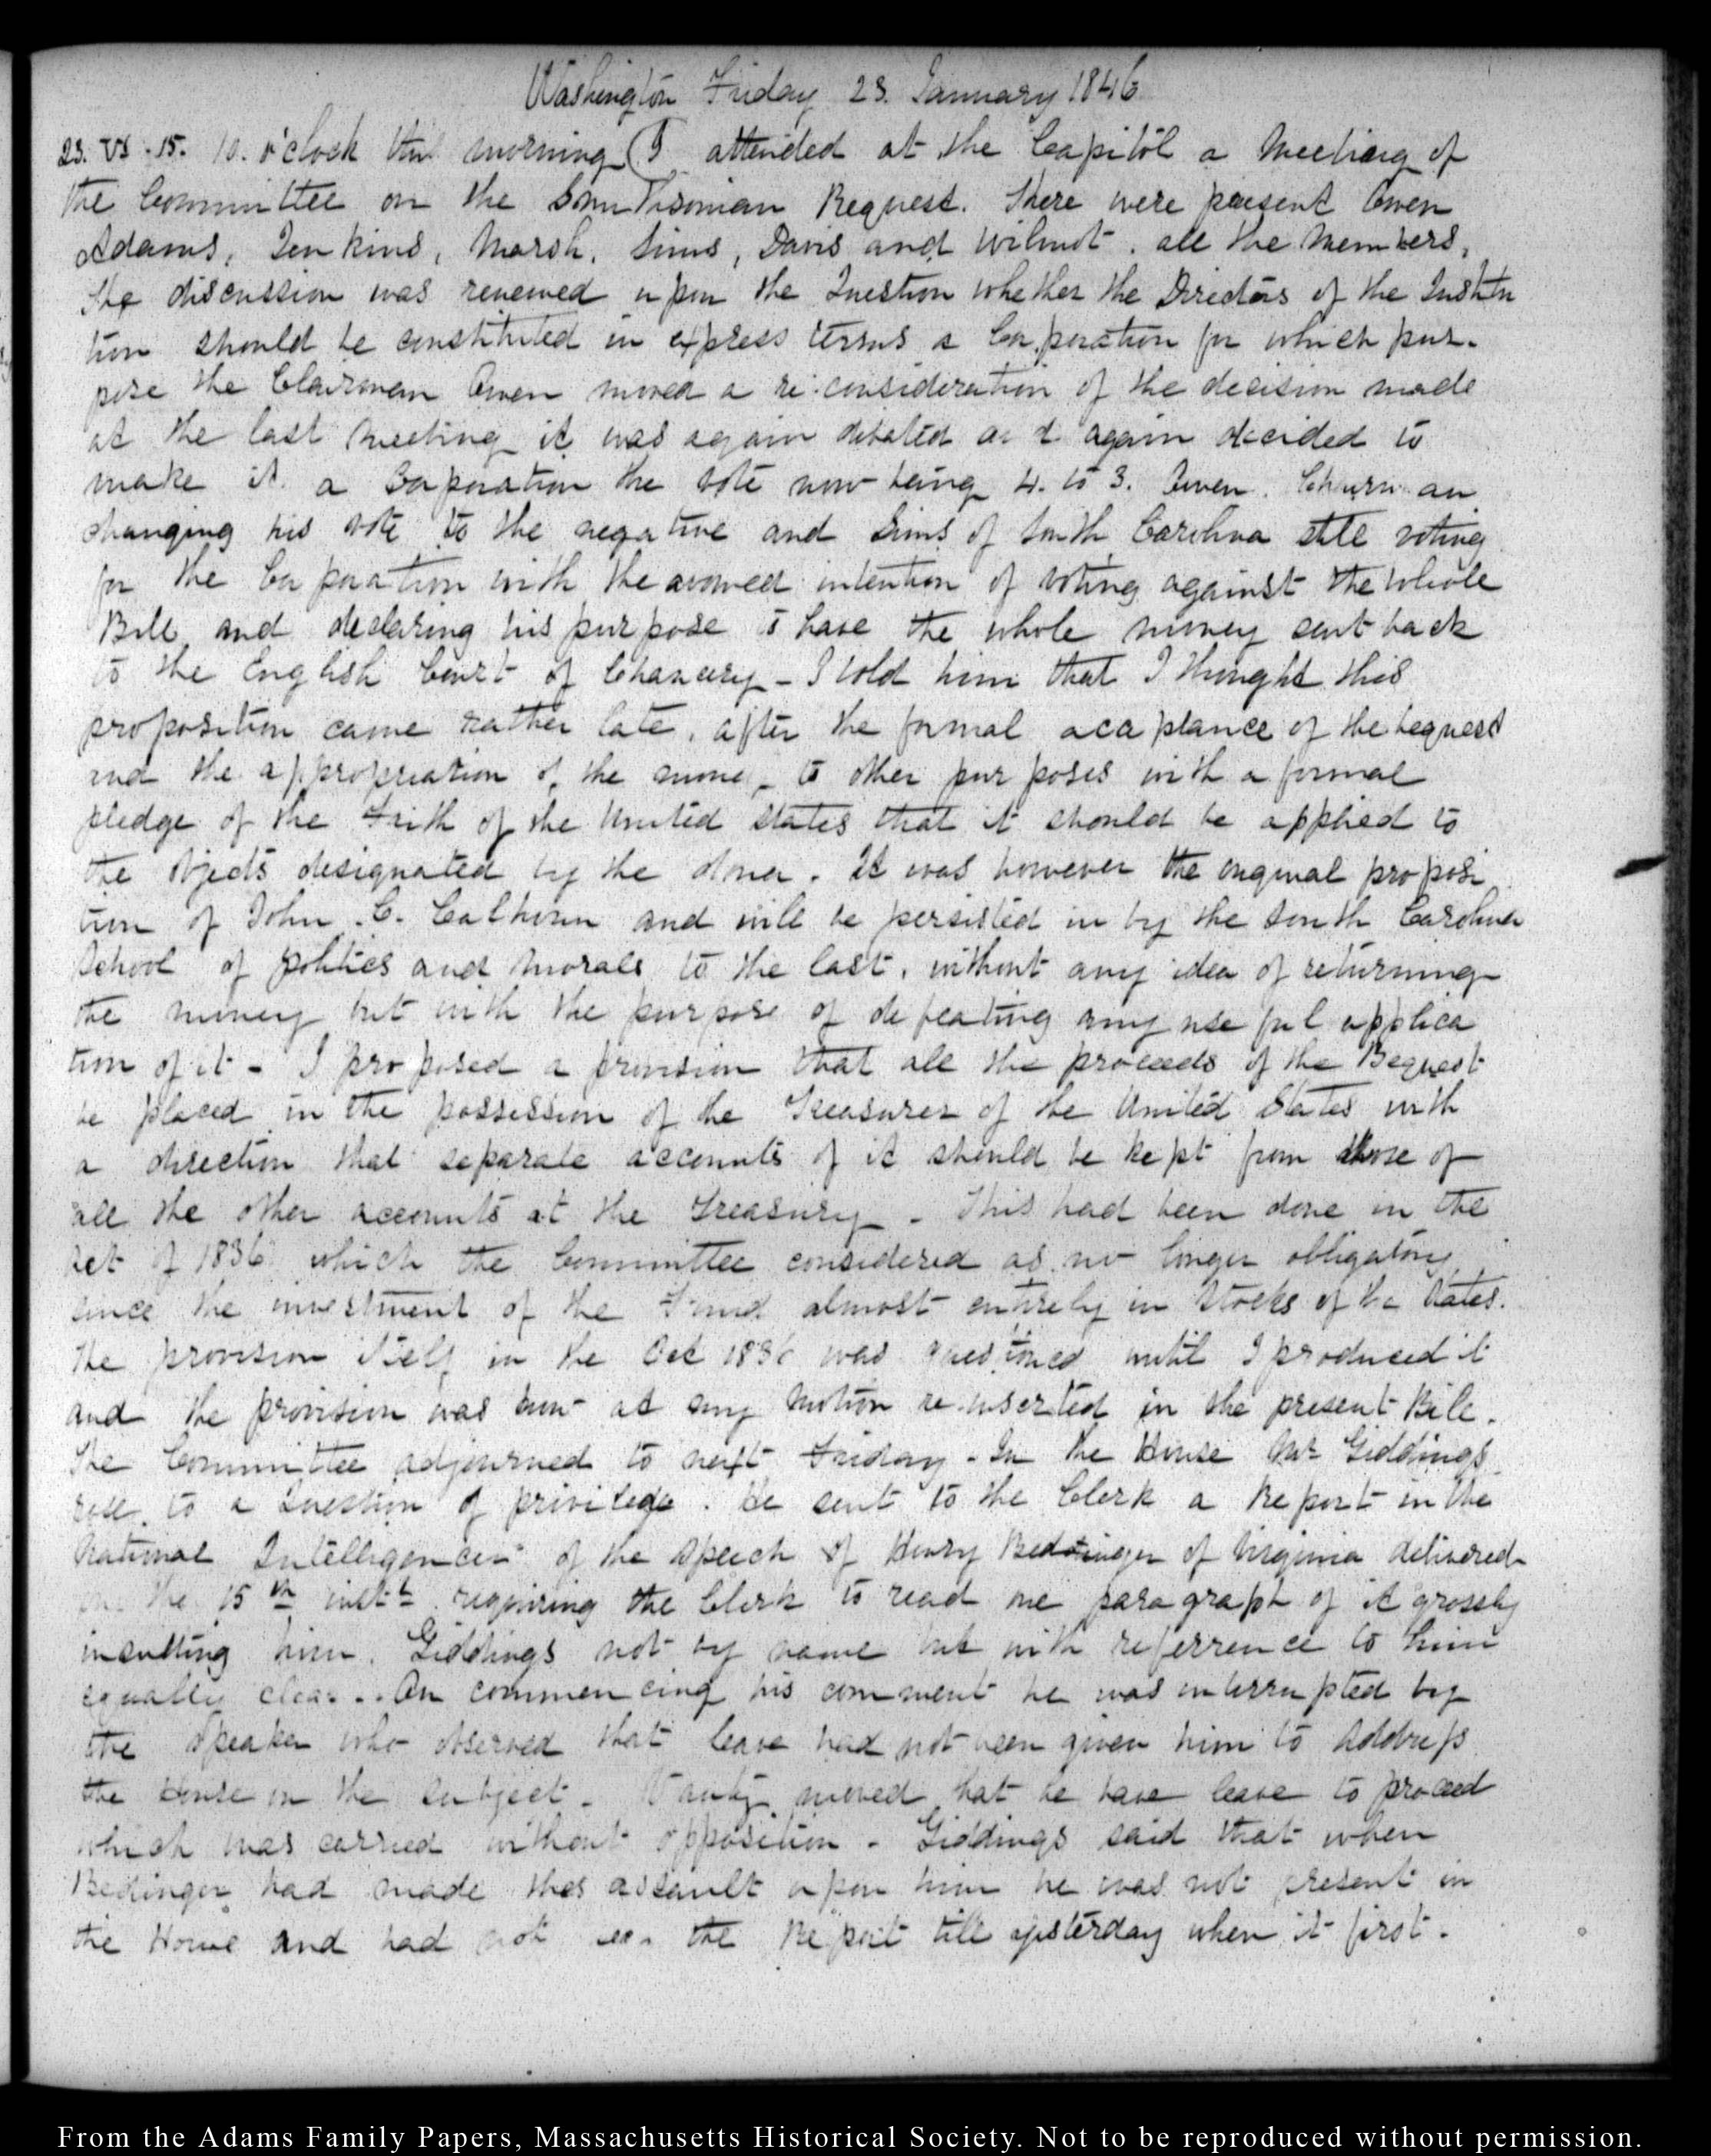 Washington Friday 23. January 1846
23. VI. 15. 10. o'clock this morning I attended at the Capitol a Meeting of
the Committee on the Smithsonian Bequest. There were present Owen
Adams, Jenkins, Marsh, Sims, Davis and Wilmot. all the Members,
The discussion was renewed upon the Question whether the Directors of the Institu
tion should be constituted in express terms a Corporation for which pur-
pose the Chairman Owen moved a re-consideration of the decision made
at the last Meeting it was again debated and again decided to
make it a Corporation the vote now being 4. to 3. Owen. Chairman
changing his vote to the negative and Sims of South Carolina still voting
for the Corporation with the avowed intention of voting against the whole
Bill and declaring his purpose to have the whole money sent back
to the English Court of Chancery - I told him that I thought this
proposition came rather late, after the formal acceptance of the bequest
and the appropriation of the money to other purposes with a formal
pledge of the Faith of the United States that it should be applied to
the objects designated by the donor. It was however the original proposi
tion of John C. Calhoun and will be persisted in by the South Carolina
School of politics and morals to the last, without any idea of returning
the money but with the purpose of defeating any useful applica
tion of it - I proposed a provision that all the proceeds of the Bequest
be placed in the possession of the Treasurer of the United States with
a direction that separate accounts of it should be kept from those of
all the other accounts at the Treasury - This had been done in the
Act of 1836 which the Committee considered as no longer obligatory
since the investment of the Fund almost entirely in Stocks of the States.
The provision itself in the Act 1836 was questioned until I produced it
and the provision was now at my motion re-inserted in the present Bill.
The Committee adjourned to next Friday - In the House Mr Giddings
rose to a Question of privilege. He sent to the Clerk a Report in the
National Intelligencer of the Speech of Henry Beddinger of Virginia delivered
on the 15th instt requiring the Clerk to read one paragraph of it grossly
insulting him. Giddings not by name but with referrence to him
equally clear. On commencing his comment he was interrupted by
the Speaker who observed that leave had not been given him to Address
the House on the Subject - moved that he have leave to proceed
which was carried without opposition - Giddings said that when
Bedinger had made this assault upon him he was not present in
the House and had not seen the Report till yesterday when it first.
From the Adams Family Papers, Massachusetts Historical Society. Not to be reproduced without permission.